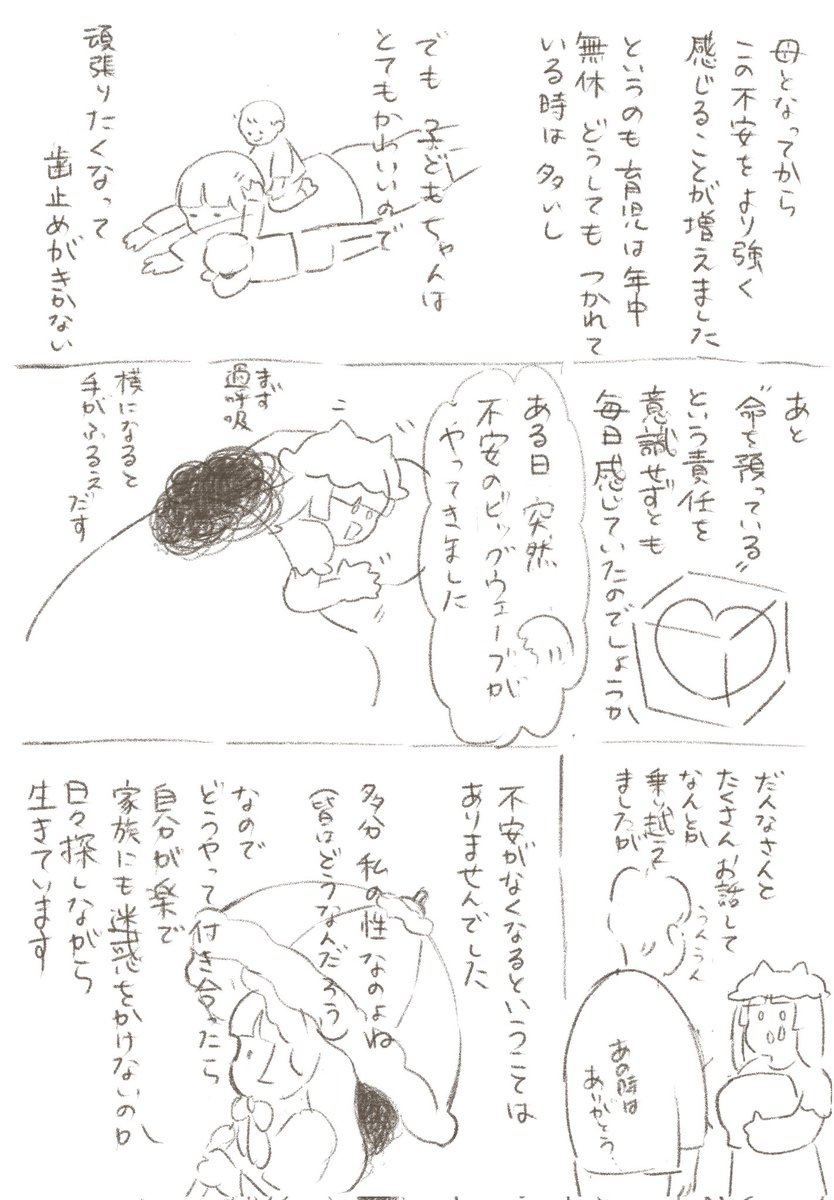 母となってから
この不安をより強く
感じることが増えました
というのも育児は年中
無休 どうしても つかれて
いる時は 多いし
でも 子どもちゃんは
とてもかわいいので
頑張りたくなって
歯止めがきかない
あと
“命を預っている”
という責任を
意識せずとも
毎日感じていたのでしょうか
ある日 突然
不安のビッグウェーブが
やってきました
まず
過呼吸
横になると
手がふるえだす
だんなさんと
たくさんお話して
なんとか
乗り越え
ましたが
うんうん
あの時は
ありがとう
不安がなくなるということは
ありませんでした
多分 私の性なのよね
(皆はどうなんだろう)
なので
どうやって付き合ったら
自分が楽で
家族にも迷惑をかけないのか
日々探しながら
生きています